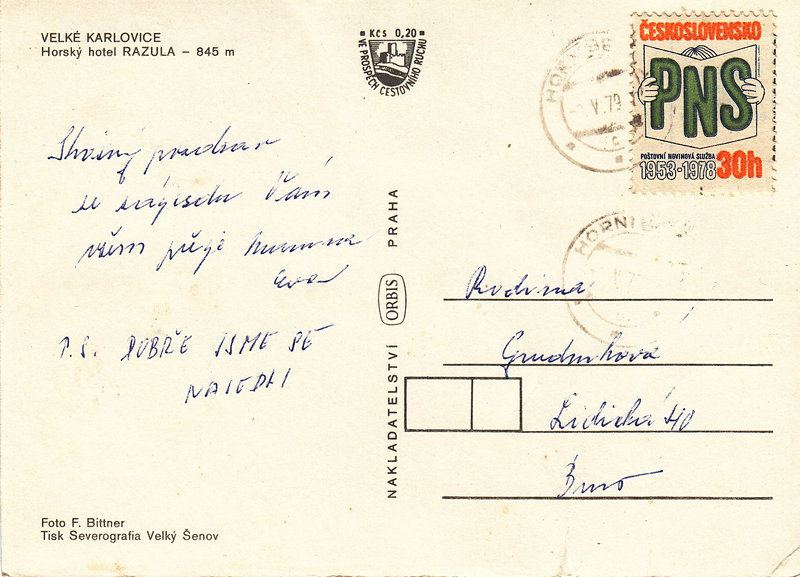 VELKÉ KARLOVICE
Horský hotel RAZULA – 845 m
Kčs 0,20
VE PROSPĚCH CESTOVNÍHO RUCHU
HORNÍ BE
V.79
c
ČESKOSLOVENSKO
PNS
POŠTOVNÍ NOVINOVÁ SLUŽBA
1953-1978 30h
HORNÍ
pozdrav
se Vám
všem přeje
Eva
P.S. DOBŘE JSME SE
NAJEDLI
NAKLADATELSTVÍ ORBIS PRAHA
Rodina
Lidická 40
Brno
Foto F. Bittner
Tisk Severografia Velký Šenov